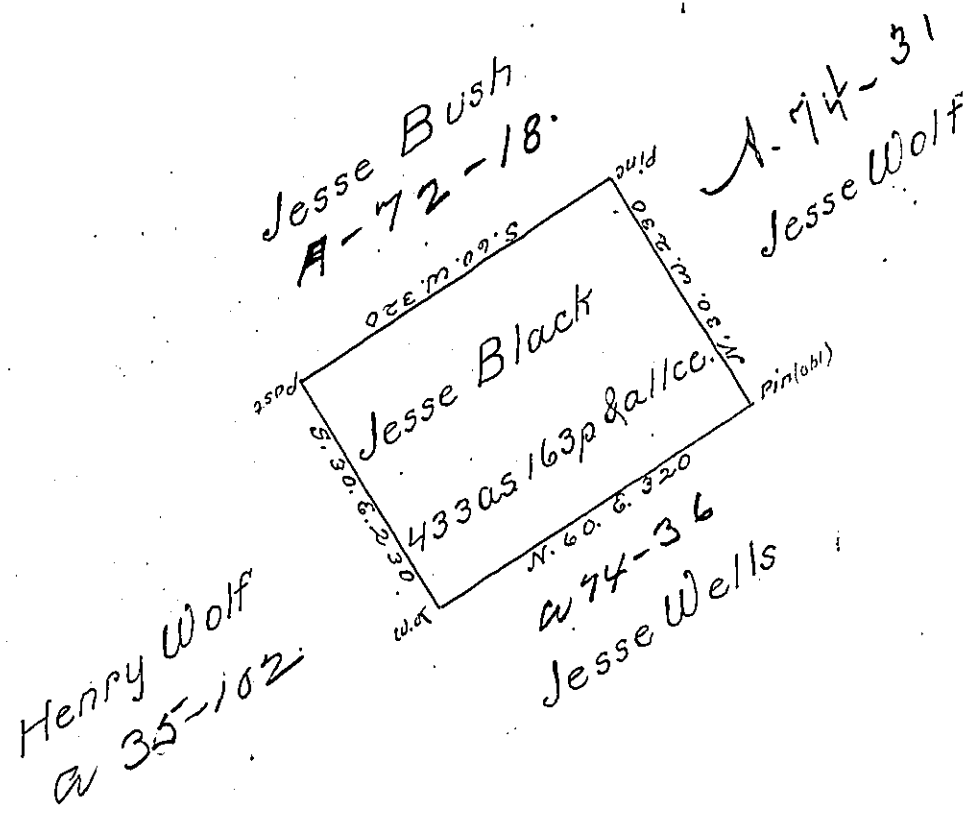 Jesse Bush
A-72-18.
A-74-31
Jesse Wolf
Pine
S. 60. W. 320
N. 30. W. 230
Post
Jesse Black
433 as. 163p & allce.
S. 30. E. 230.
Pin(obl)
N. 60. E. 320
W.O.
a 74-36
Jesse Wells
Henry Wolf
a 35-102.